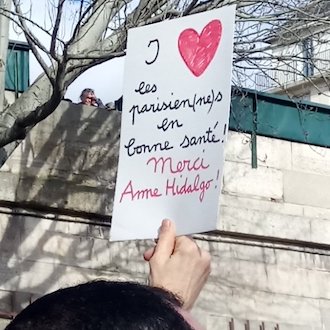 I ❤
les
parisien(ne)s
en
bonne santé!
Merci
Anne Hidalgo!